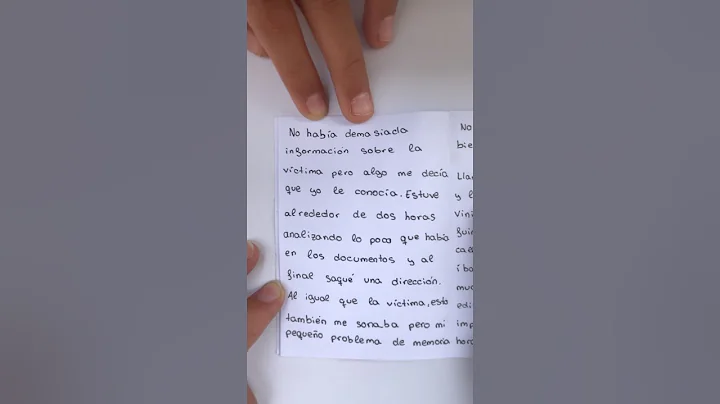 No había demasiada
información sobre la
víctima pero algo me decía
que yo le conocía. Estuve
alrededor de dos horas
analizando lo poco que había
en los documentos y al
final saqué una dirección.
Al igual que la víctima, esta
también me sonaba pero mi
pequeño problema de memoria
No
bie
Lla
y l
Vini
ca
íba
mu
edi
imp
hora